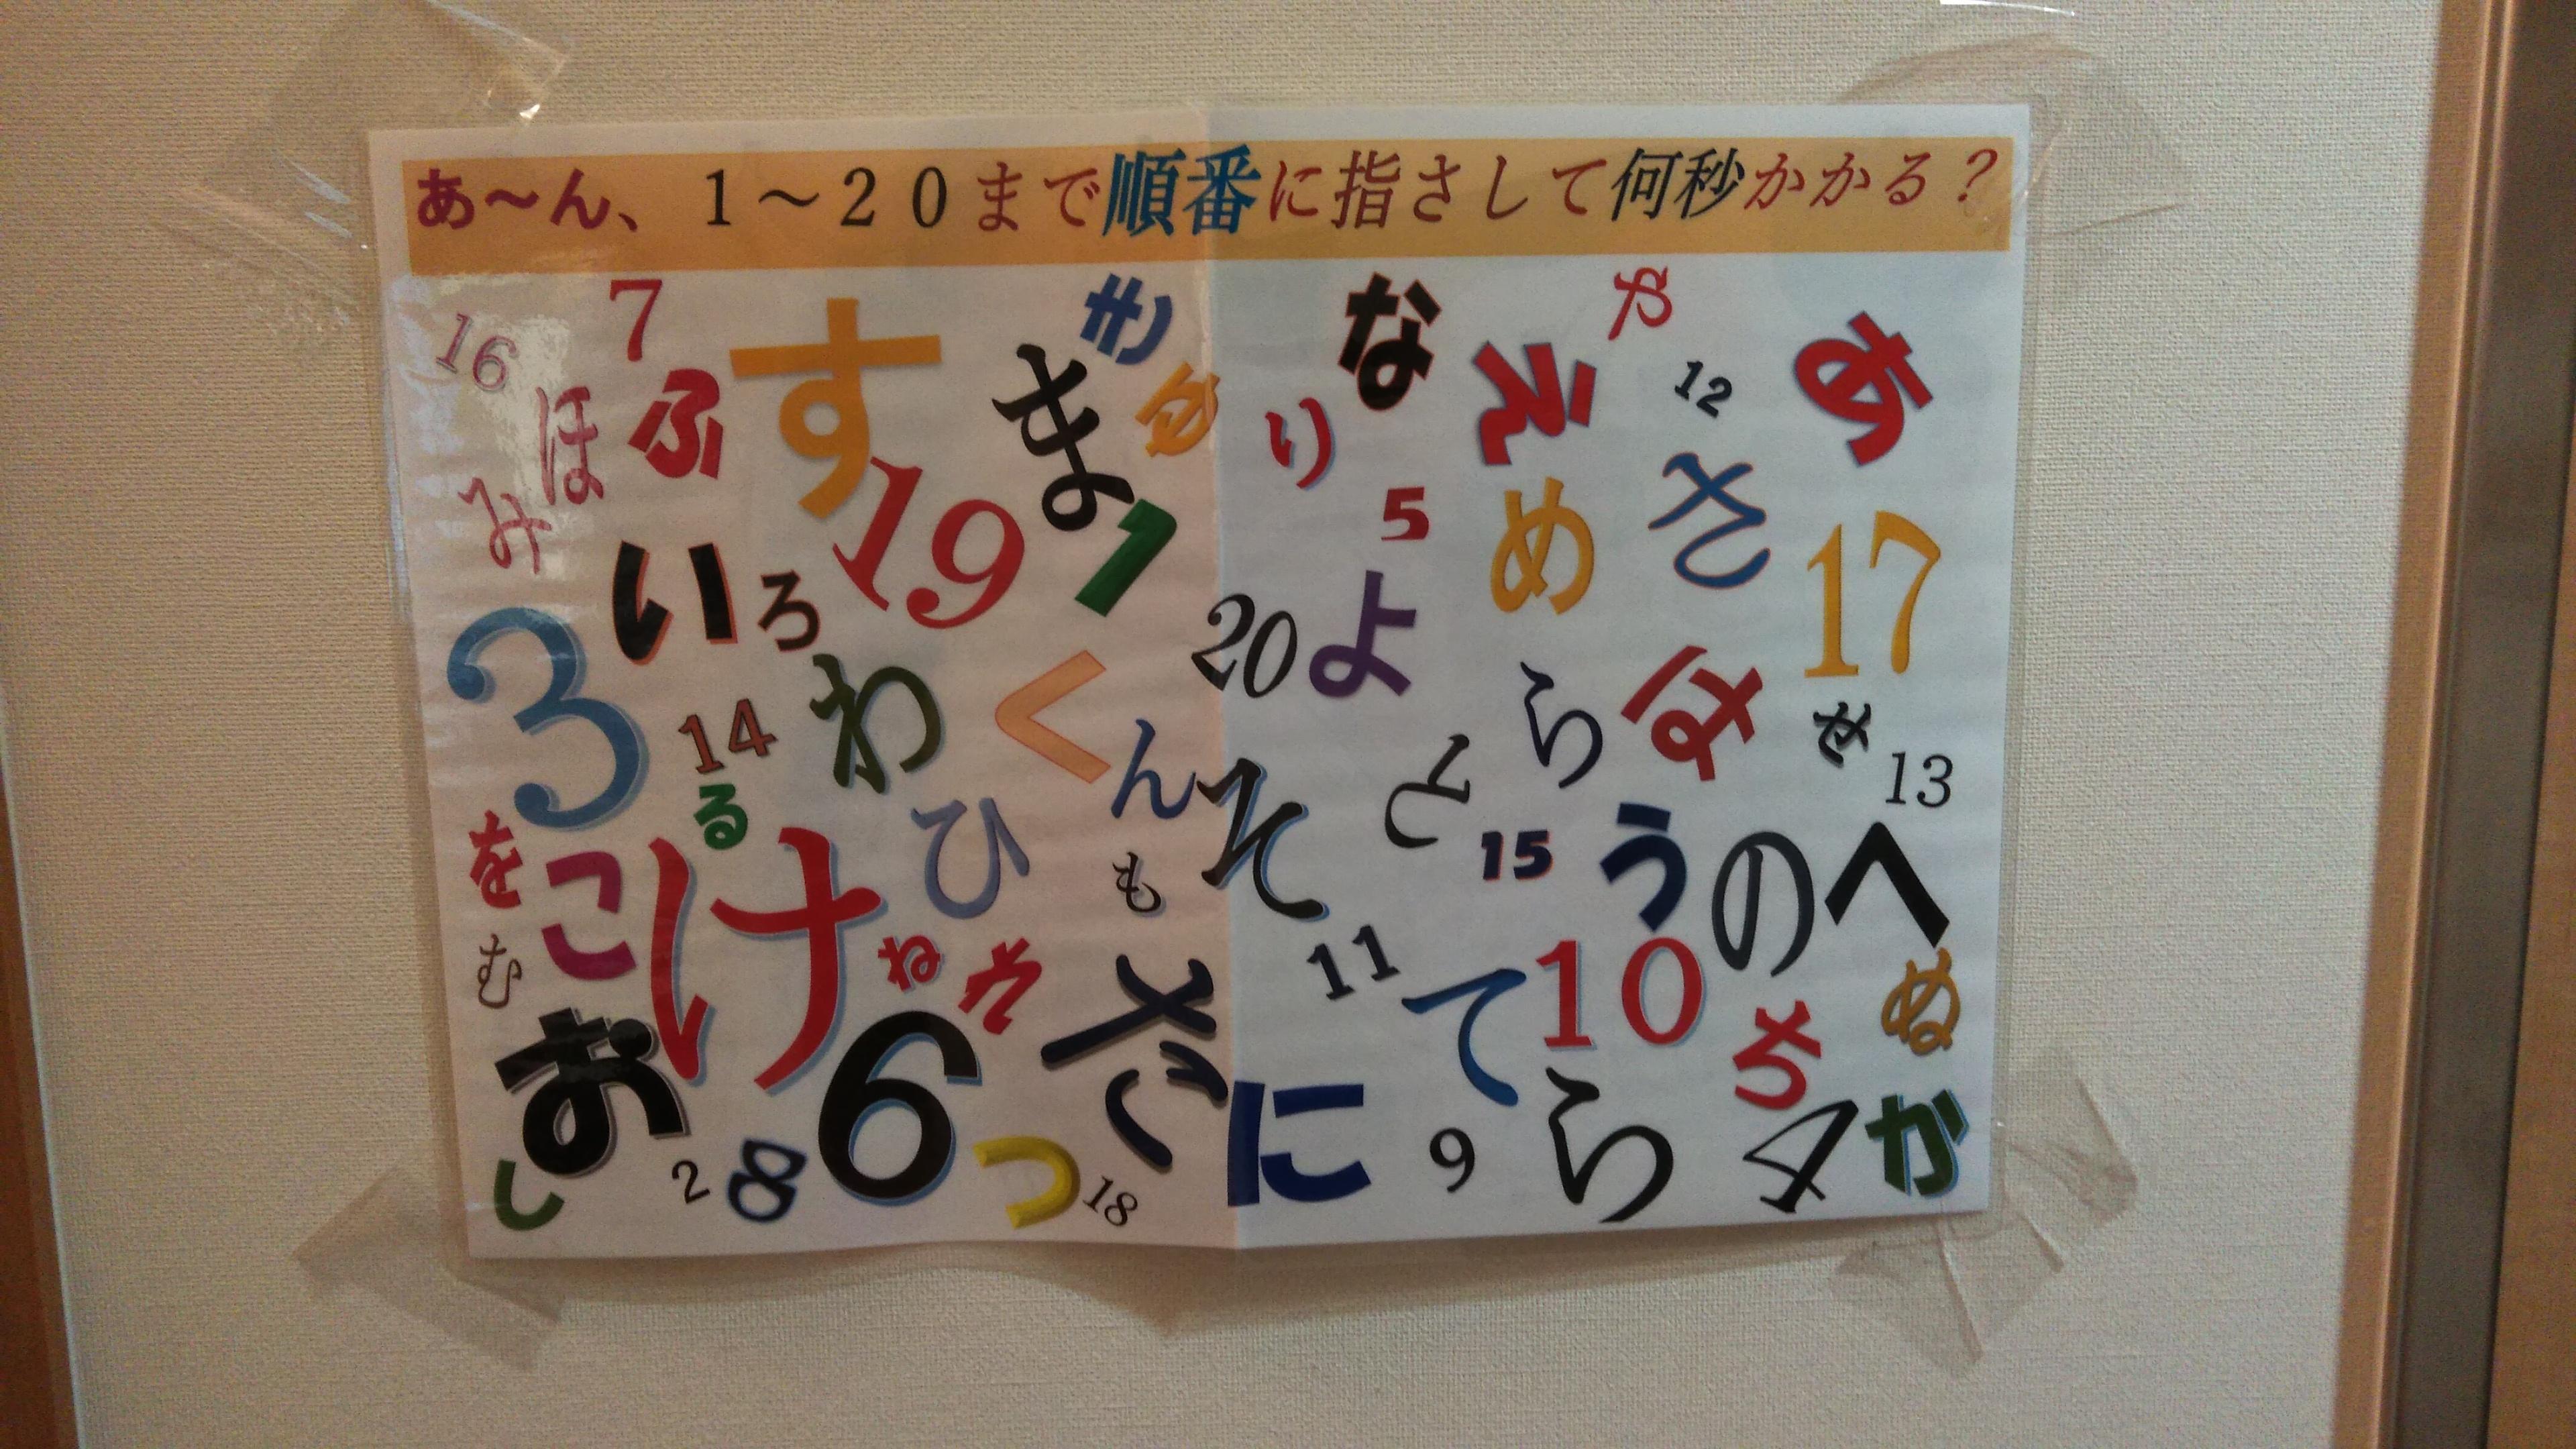 あ～ん、1～20まで順番に指さして何秒かかる？
16
7
す
き
な
や
え
12
あ
ほ
ふ
ま
ゆ
り
5
め
さ
み
19
1
17
い
ろ
20
よ
3
14
わ
く
ん
ら
は
せ
13
る
ひ
そ
と
15
う
の
へ
を
こ
け
も
む
ね
れ
た
11
て
10
ち
ぬ
お
6
に
9
ら
4
か
し
2
8
つ
18